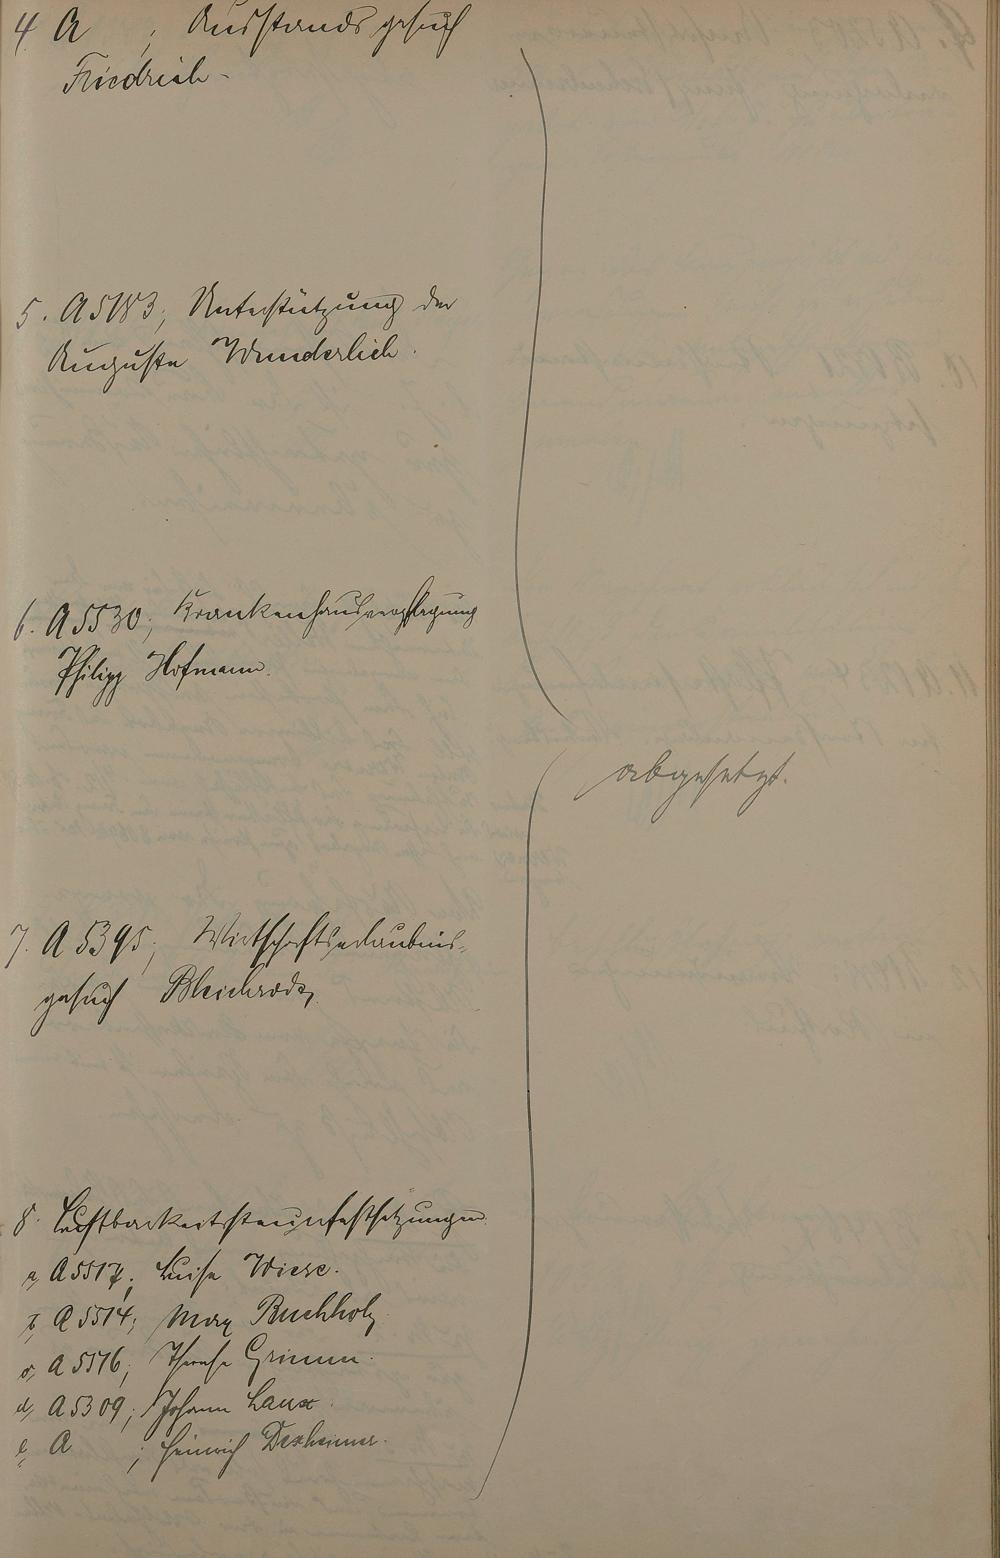 4 A ; Ausstandsgesuch
Friedrich-
5. A 5183; Unterstützung der
Auguste Wunderlich.
6. A 5530; Krankenhausverpflegung
Philipp Hofmann.
7. A 5395; Wirtschaftserlaubnis-
gesuch Bleichrodt,
abgesetzt.
8. Lustbarkeitssteuerfestsetzungen
a, A 5517; Luise Wiese.
b, A 5514; Max Buchholz
c, A 5516; Therese Grimm.
d, A 5309; Johann Laux.
e, A ; Heinrich Dexheimer.